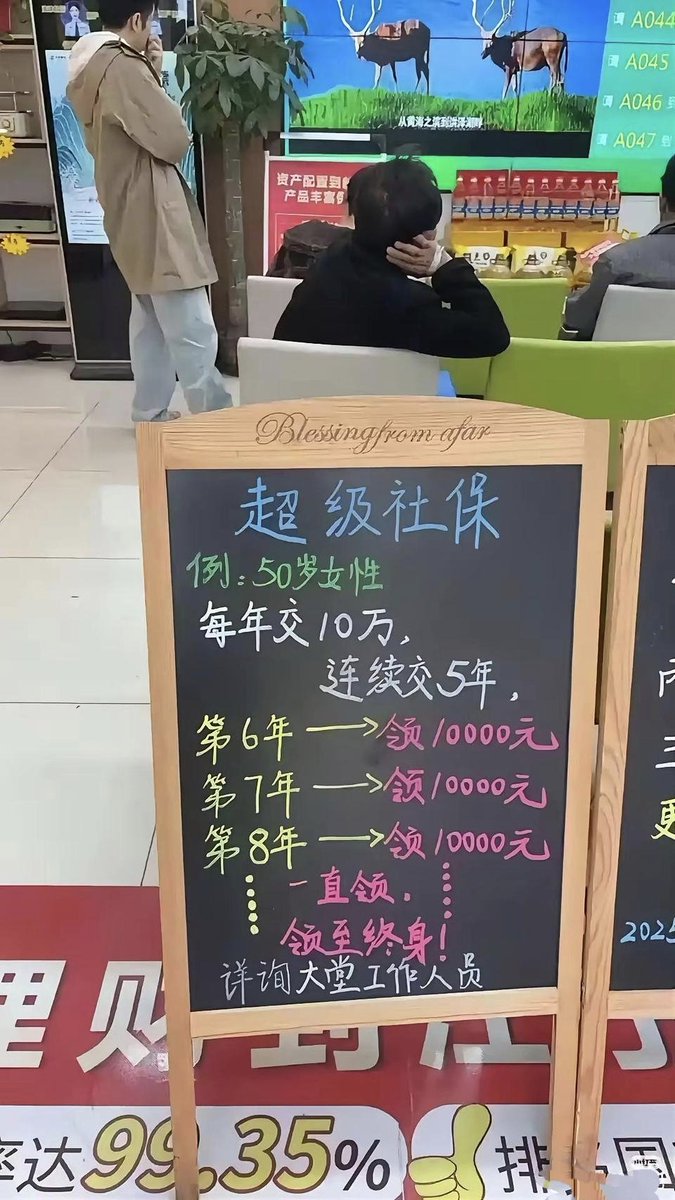 A044
A045
A046 到
A047 到
从黄海之滨到洪泽湖畔
资产配置到
产品丰富
Blessing from afar
超级社保
例:50岁女性
每年交10万,
连续交5年,
第6年→领10000元
第7年→领10000元
第8年→领10000元
一直领,
领至终身!
详询大堂工作人员
三
更
2025
理财到江
率达99.35%
排名